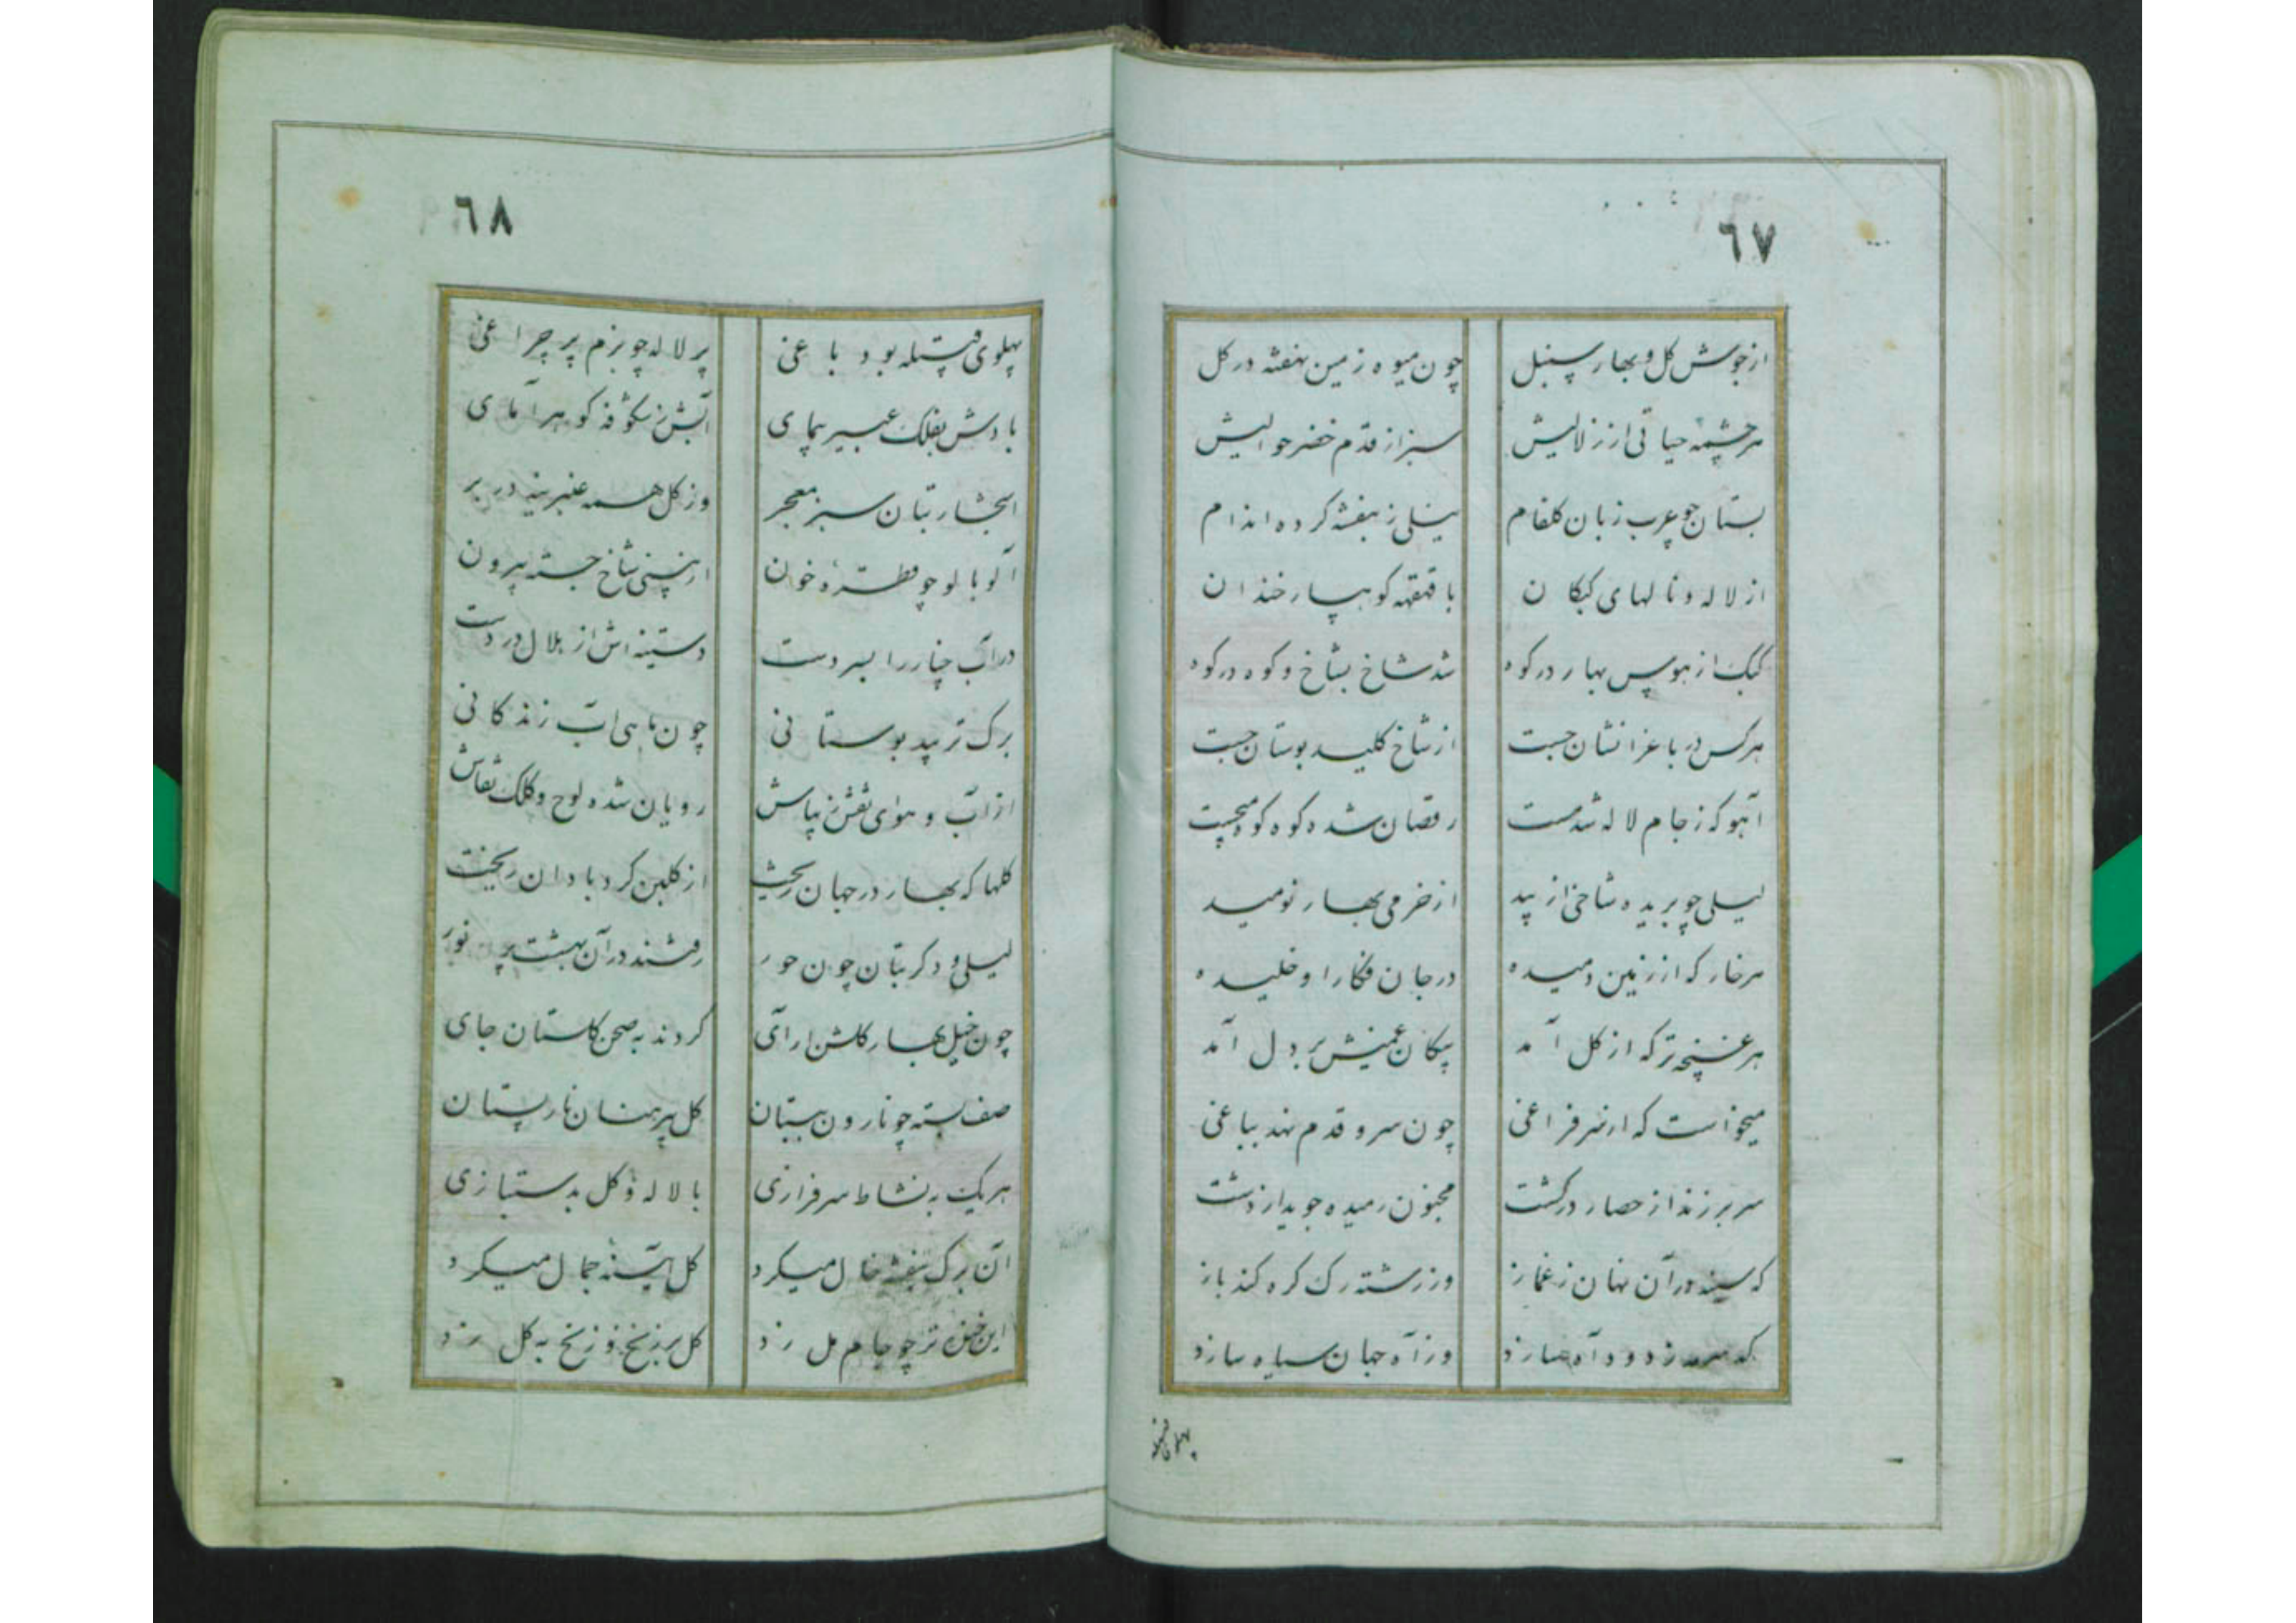 ٦٧
از جوش کل و بهار سنبل چون میوه زمین نهفته در کل
هر چشمه حیاتی از زلالیش سبز از قدم خضر حوالیش
بستان چو عرب زبان کلفام نیلی ز بنفشه کرده اندام
از لاله و نالهای کبکان با قهقهه کوهسار خندان
کبک از هوس بهار در کوه شد شاخ بشاخ و کوه در کوه
هر کس در باغرا نشان جست از شاخ کلید بوستان جست
آهو که ز جام لاله شد مست رقصان شده کوه کوه میجست
لیلی چو بریده شاخی از بید از خرمی بهار نومید
هر خار که از زمین دمیده در جان فکار او خلیده
هر غنچه تر که از کل آمد پیکان غمیش بر دل آمد
میخواست که از سر فراغی چون سرو قدم نهد بباغی
سر برزند از حصار در کشت مجنون رمیده جوید از دشت
که سینه در آن نهان ز غماز وز رشته رک کره کند باز
که زد و دآه سازد وز آه جهان سیاه سازد
پهلوی قبیله
٦٨
پهلوی قبیله بود باغی پر لاله چو بزم پر چراغی
بادش بفلک عبیر پیمای آبش ز شکوفه کوهر آمای
اشجار بتان سبز معجر وز کل همه عنبرینه در بر
آلوبالو چو قطره خون از بینی شاخ جسته بیرون
در آب چنار را بسر دست دستینه اش از هلال در دست
برک تر بید بوستانی چون ماهی اب زندکانی
از آب و هوای نقش زیباش رویان شده لوح و کلک نقاش
کلها که بهار در جهان ریخت از کلبن کرد بادان ریخت
لیلی و دکر بتان چون حور رفتند در آن بهشت پر نور
چون خیل بهار کلشن ارای کردند به صحن کلستان جای
صف بسته چو نارون ببستان کل پیرهنان نار پستان
هر یک به نشاط سرفرازی با لاله و کل بدستبازی
ان برک بنفشه خال میکرد کل آینه جمال میکرد
این خنده تر چو جام مل زد کل بر زنخ و زنخ به کل زد